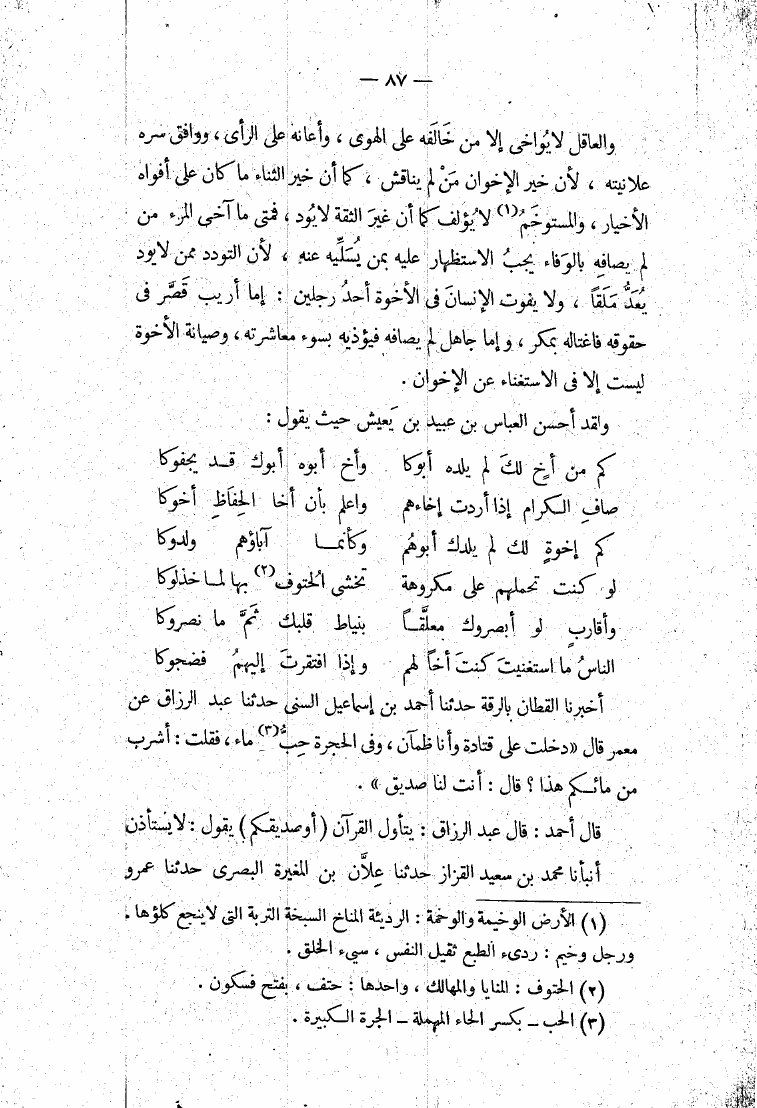 — ٨٧ —
والعاقل لا يُواخى إلا من خَالَفَه على الهوى ، وأعانه على الرأى ، ووافق سره
علانيته ، لأن خير الإخوان مَنْ لم يناقش ، كما أن خير الثناء ما كان على أفواه
الأخيار ، والمستوخَمُ (١) لا يُؤلف كما أن غيرَ الثقة لا يُود ، فمتى ما آخى المرء من
لم يصافِه بالوفاء يجبُ الاستظهار عليه بمن يُسَلِّيه عنه ، لأن التودد ممن لا يود
يُعَدُّ مَلَقاً ، ولا يفوت الإنسانَ فى الأخوة أحدُ رجلين : إما أريب قَصَّر فى
حقوقه فاغتاله بمكر ، وإما جاهل لم يصافه فيؤذيه بسوء معاشرته ، وصيانة الأخوة
ليست إلا فى الاستغناء عن الإخوان .
ولقد أحسن العباس بن عبيد بن يَعيش حيث يقول :
كم من أخٍ لكَ لم يلده أبوكا وأخ أبوه أبوك قـد يجفوكا
صافِ الكرام إذا أردت إخاءهم واعلم بأن أخا الحِفَاظِ أخوكا
كم إخوةٍ لك لم يلدك أبوهُم وكأنمـا آباؤهم ولدوكا
لو كنت تحملهم على مكروهة تخشى الحتوف (٢) بها لمـا خذلوكا
وأقاربٍ لو أبصروك معلَّقـاً بنياط قلبك ثَمَّ ما نصروكا
الناسُ ما استغنيتَ كنتَ أخاً لهم وإذا افتقرتَ إليهمُ فضجوكا
أخبرنا القطان بالرقة حدثنا أحمد بن إسماعيل السنى حدثنا عبد الرزاق عن
معمر قال «دخلت على قتادة وأنا ظمآن ، وفى الحجرة حِبُّ (٣) ماء ، فقلت : أشرب
من مائـكم هذا ؟ قال : أنت لنا صديق » .
قال أحمد : قال عبد الرزاق : يتأول القرآن (أوصديقكم) يقول : لا يستأذن
أنبأنا محمد بن سعيد القزاز حدثنا عِلاَّن بن المغيرة البصرى حدثنا عمرو
(١) الأرض الوخيمة والوخمة : الرديئة المناخ السبخة التربة التى لا ينجع كلؤها .
ورجل وخيم : ردىء الطبع ثقيل النفس ، سيىء الخلق .
(٢) الحتوف : المنايا والمهالك ، واحدها : حتف ، بفتح فسكون .
(٣) الحب – بكسر الحاء المهملة – الجرة الكبيرة .